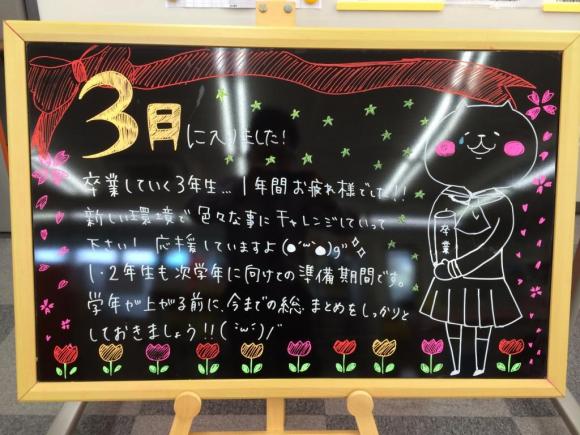 3月に入りました!
卒業していく3年生…1年間お疲れ様でした!!
新しい環境で色々な事にチャレンジしていって
下さい! 応援していますよ(●´ω`●)g"
1・2年生も次学年に向けての準備期間です。
学年が上がる前に、今までの総まとめをしっかりと
しておきましょう!!(`・ω・´)ノ゛
卒業